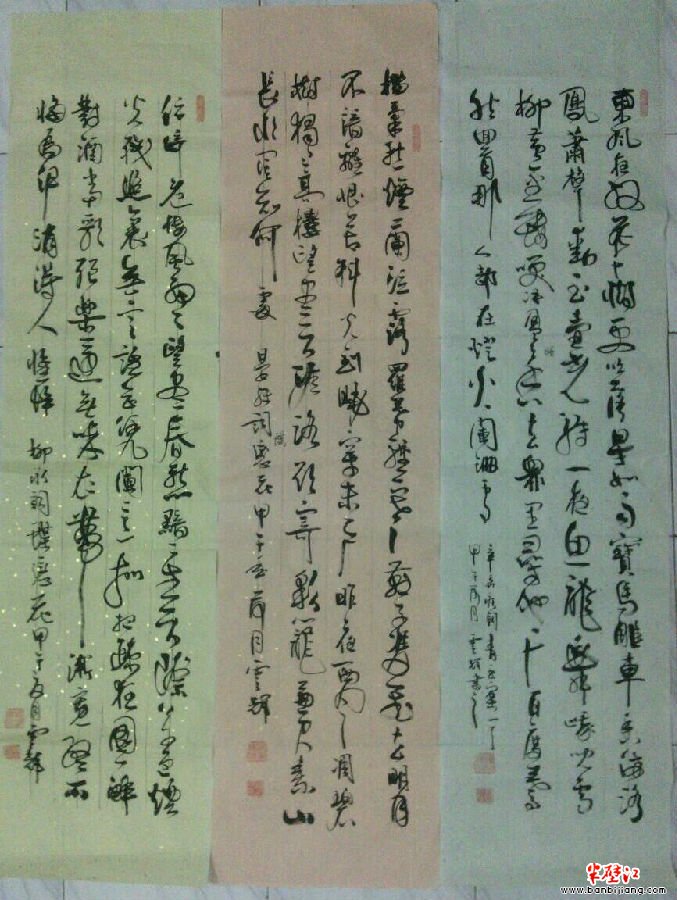 東風夜放花千樹更吹落星如雨寶馬雕車香滿路
鳳簫聲動玉壺光轉一夜魚龍舞蛾兒雪
柳黃金縷笑語盈盈暗香去眾里尋他千百度驀
然回首那人卻在燈火闌珊處
辛弃疾詞青玉案一首
甲午月雲輝書
檻菊愁煙蘭泣露羅幕輕寒燕子雙飛去明月
不諳離恨苦斜光到曉穿朱戶昨夜西風凋碧
樹獨上高樓望盡天涯路欲寄彩箋兼尺素山
長水闊知何處 晏殊詞蝶戀花甲午五月雲輝
佇倚危樓風細細望盡春愁黯黯生天際草色煙
光殘照裏無言誰會憑闌意擬把疏狂圖一醉
對酒當歌強樂還無味衣帶漸寬終不
悔為伊消得人憔悴 柳永詞蝶戀花甲午五月雲輝
半壁江
www.banbijiang.com